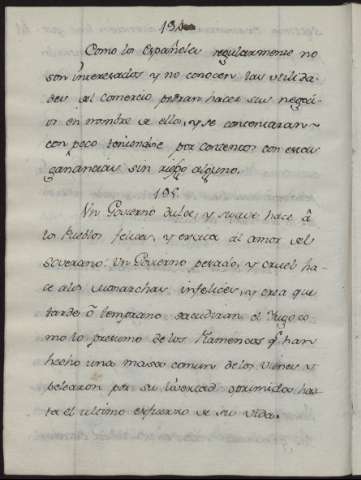 194
Como los Españoles regularmente no
son interesados y no conocen las utilida-
des del comercio podran hacer sus negoci-
os en nombre de ellos, y se contentaran
con poco teniendose por contentos con estas
ganancias sin riesgo alguno.
195.
Un Govierno dulce, y suave hace â
los Pueblos felices, y excita al amor del
Soverano: Un Govierno pesado, y cruel ha-
ce a los Monarchas infelices, y crea que
tarde ô temprano sacudiran el Yugo co-
mo lo presumo de los Flamencos q.e han
hecho una masa comun de los vienes y
pelearon por su livertad oprimida has-
ta el ultimo esfuerzo de su vida.